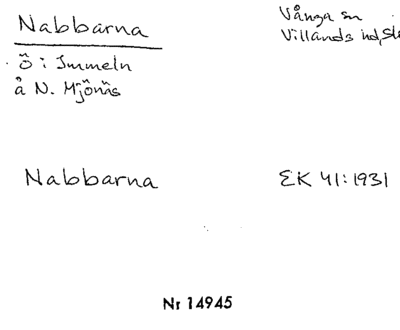 Nabbarna
Vånga sn
Villands hd, Sk
ö i Immeln
å N. Mjönäs
Nabbarna
EK 41:1931
Nr 14945